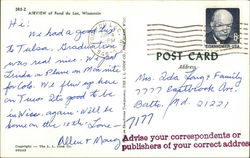 DR5-2 AIRVIEW of Fond du Lac, Wisconsin
Hi!
We had a good trip
to Tulsa. Graduation
was real nice. We
Linda on Plane on Mon nite
for Colo. We flew up here
on Tues. It's good to be
in Wisc. again. Will be
home on the 12th. Love
Allen + Mary
EISENHOWER·USA
POST CARD
Address
Mrs. Ada Lang + Family
7777 Eastbrook Ave
Balto, Md. 21221
7177
Advise your correspondents or
publishers of your correct address